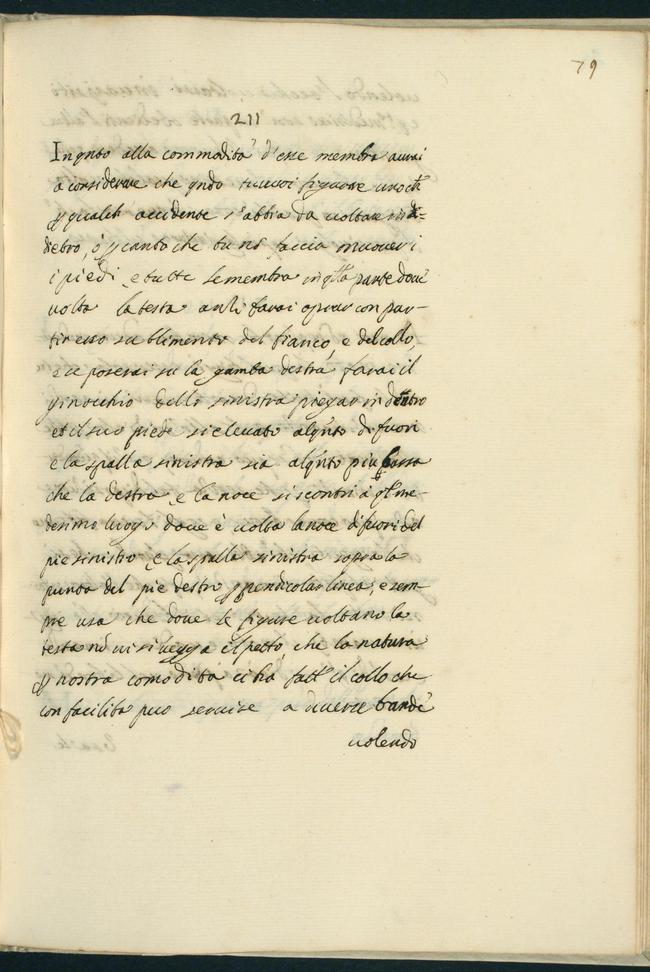 79
211
In qnto alla commodità d'esse membra averai
a considerare che qndo tu vuoi figurare uno ch
p qualch accidente s'abbia da voltare in di=
dietro, ò p canto che tu nō faccia muoveri
i piedi, e tutte le membra in qlla parte dove
volta la testa anzi farai oprar con par-
tir esso svoltimento del fianco, e del collo,
e se poserai su la gamba destra farai il
ginocchio dello sinistra piegar in dentro
et il suo piede sie elevato alqnto di fuori
e la spalla sinistra sia alqnto più bassa
che la destra, e la noce si scontri à ql me-
desimo luogo dove è volta la noce di fuori del
pie sinistro e la spalla sinistra sopra la
punta del pie destro p pendicolar linea, e sem-
pre usa che dove le figure voltano la
testa nō vi si vegga il petto, che la natura
p nostra comodità ci hà fatt il collo che
con facilità può servire a diverse bande
volendo